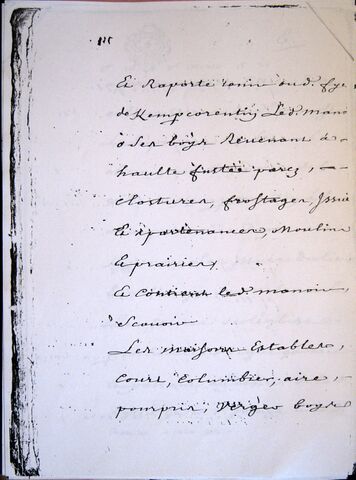 Et Raporte tenir du d. fye
de Kempcorentin, Le d. mano
o Ses boys Revenant à
haulte fustée parcz, –
Clostures, frostages, Issue
Et apartenances, Moulin
Et prairies,
Et Contient le d. manoir
Scavoir
Les maisons Estables,
Court, Columbier, aire, –
pourpris, Vergeo boys